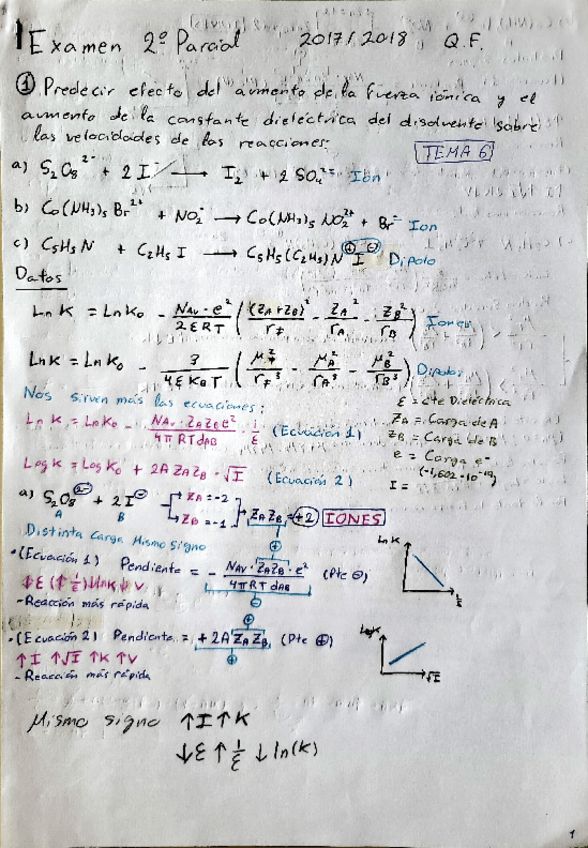 Examen 2º Parcial 2017/2018 Q.F.
① Predecir efecto del aumento de la fuerza iónica y el
aumento de la constante dieléctrica del disolvente sobre
las velocidades de las reacciones:
TEMA 6
a) S₂O₈²⁻ + 2 I⁻ → I₂ + 2 SO₄²⁻ Ion
b) Co(NH₃)₅ Br²⁺ + NO₂⁻ → Co(NH₃)₅ NO₂²⁺ + Br⁻ Ion
c) C₅H₅N + C₂H₅ I → C₅H₅(C₂H₅)N⁺ I⁻ Dipolo
Datos
Ln K = Ln k₀ - NAV · e² / 2ERT ( (ZA + ZB)² / r≠ - ZA² / rA - ZB² / rB )
Ln K = Ln K₀ - 3 / 4ε KB T ( μ≠² / r≠³ - μA² / rA³ - μB² / rB³ ) Dipolos
Nos sirven más las ecuaciones:
ε = cte Dieléctrica
Ln K = Ln K₀ - NAV · ZAZB e² / 4π RT dAB · 1/ε (Ecuación 1)
ZA = Carga de A
ZB = Carga de B
e = Carga e⁻
(-1,602 · 10⁻¹⁹)
Log K = Log K₀ + 2A ZA ZB · √I (Ecuación 2)
I =
a) S₂O₈²⁻ + 2I⁻ → ZA = -2 → ZB = -1 ZA ZB = +2 IONES
A B
Distinta carga Mismo signo
• (Ecuación 1) Pendiente = - NAV · ZAZB · e² / 4πRT dAB (Pte ⊖)
Ln K
1/ε
↓ε (↑ 1/ε) ↓Ln K ↓V
- Reacción más rápida
• (Ecuación 2) Pendiente = + 2A ZA ZB (Pte ⊕)
Log K
√I
↑I ↑√I ↑K ↑V
- Reacción más rápida
Mismo signo ↑I ↑K
↓ε ↑ 1/ε ↓ ln(k)
1